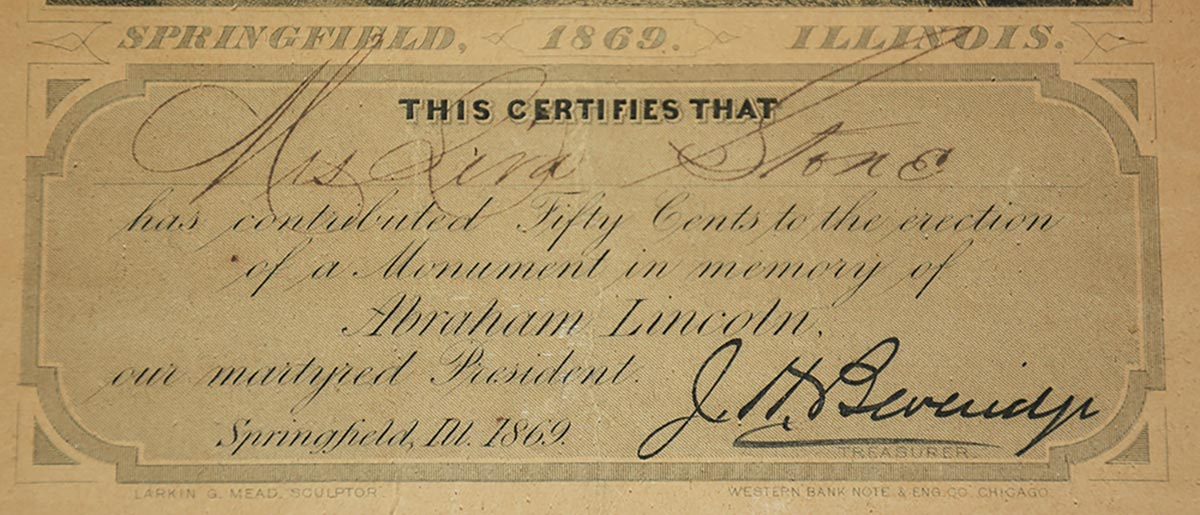 SPRINGFIELD, 1869. ILLINOIS.
THIS CERTIFIES THAT
Mrs Stone
has contributed Fifty Cents to the erection
of a Monument in memory of
Abraham Lincoln,
our martyred President.
Springfield, Ill. 1869.
J. H. Beveridge
TREASURER
LARKIN G. MEAD, SCULPTOR. WESTERN BANK NOTE & ENG. CO. CHICAGO.